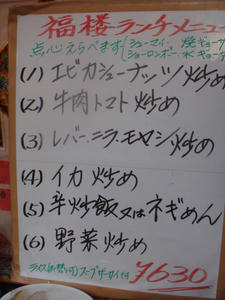 福楼ランチメニュー
点心えらべます(シューマイ、焼ギョーザ
ショーロンポー、水ギョーザ
(1) エビカシューナッツ炒め
(2) 牛肉トマト炒め
(3) レバーニラモヤシ炒め
(4) イカ炒め
(5) 辛炒飯又はネギめん
(6) 野菜炒め
ライス(お替り可)スープザーサイ付 ¥630